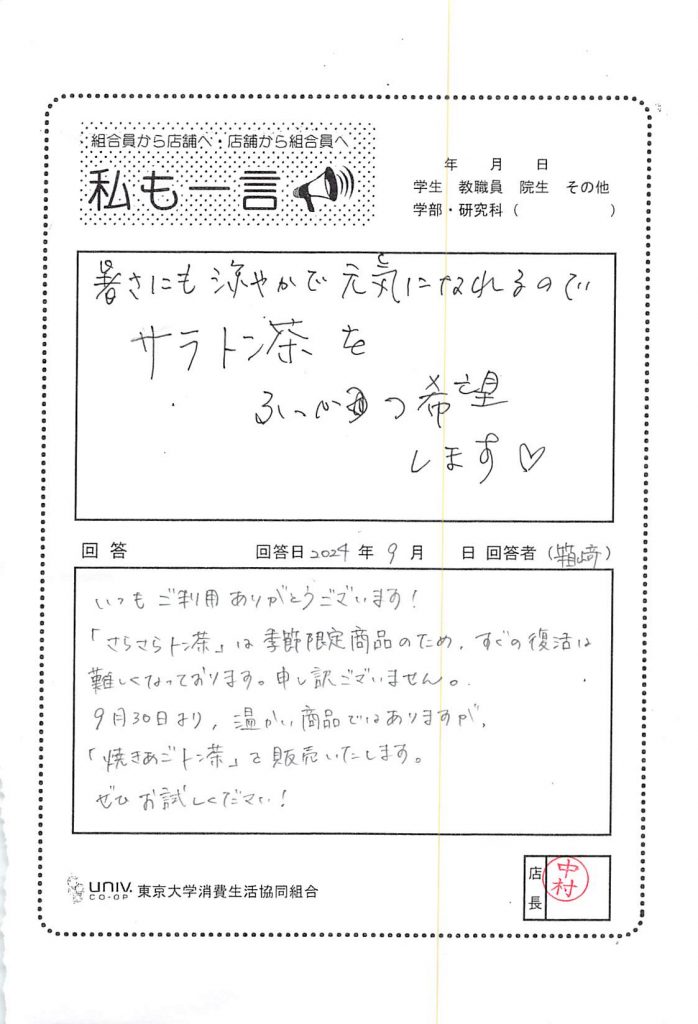 組合員から店舗へ・店舗から組合員へ
私も一言
年 月 日
学生 教職員 院生 その他
学部・研究科( )
暑さにも涼やかで元気になれるので
サラトン茶を
ふっかつ希望
します♡
回答 回答日2024年9月 日 回答者(箱崎)
いつもご利用ありがとうございます!
「さらさらトン茶」は季節限定商品のため、すぐの復活は
難しくなっております。申し訳ございません。
9月30日より、温かい商品ではありますが、
「焼きあごトン茶」を販売いたします。
ぜひお試しください!
UNIV. CO-OP 東京大学消費生活協同組合
店長 中村